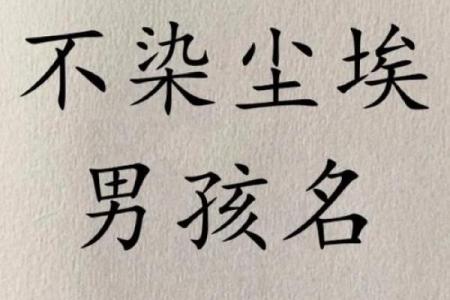 不染尘埃
男孩名